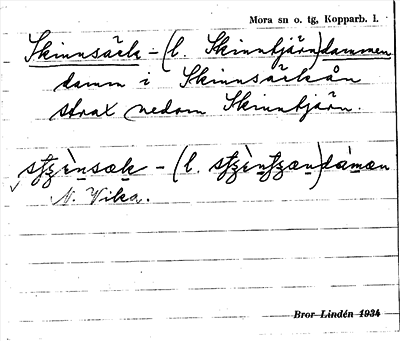 Mora sn o. tg, Kopparb. l.
Skinnsäck - (l. Skinntjärn)dammen
damm i Skinnsäckån
strax nedom Skinntjärn.
- (l.
N. Vika.
Bror Lindén 1934